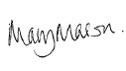 Mary Mason.